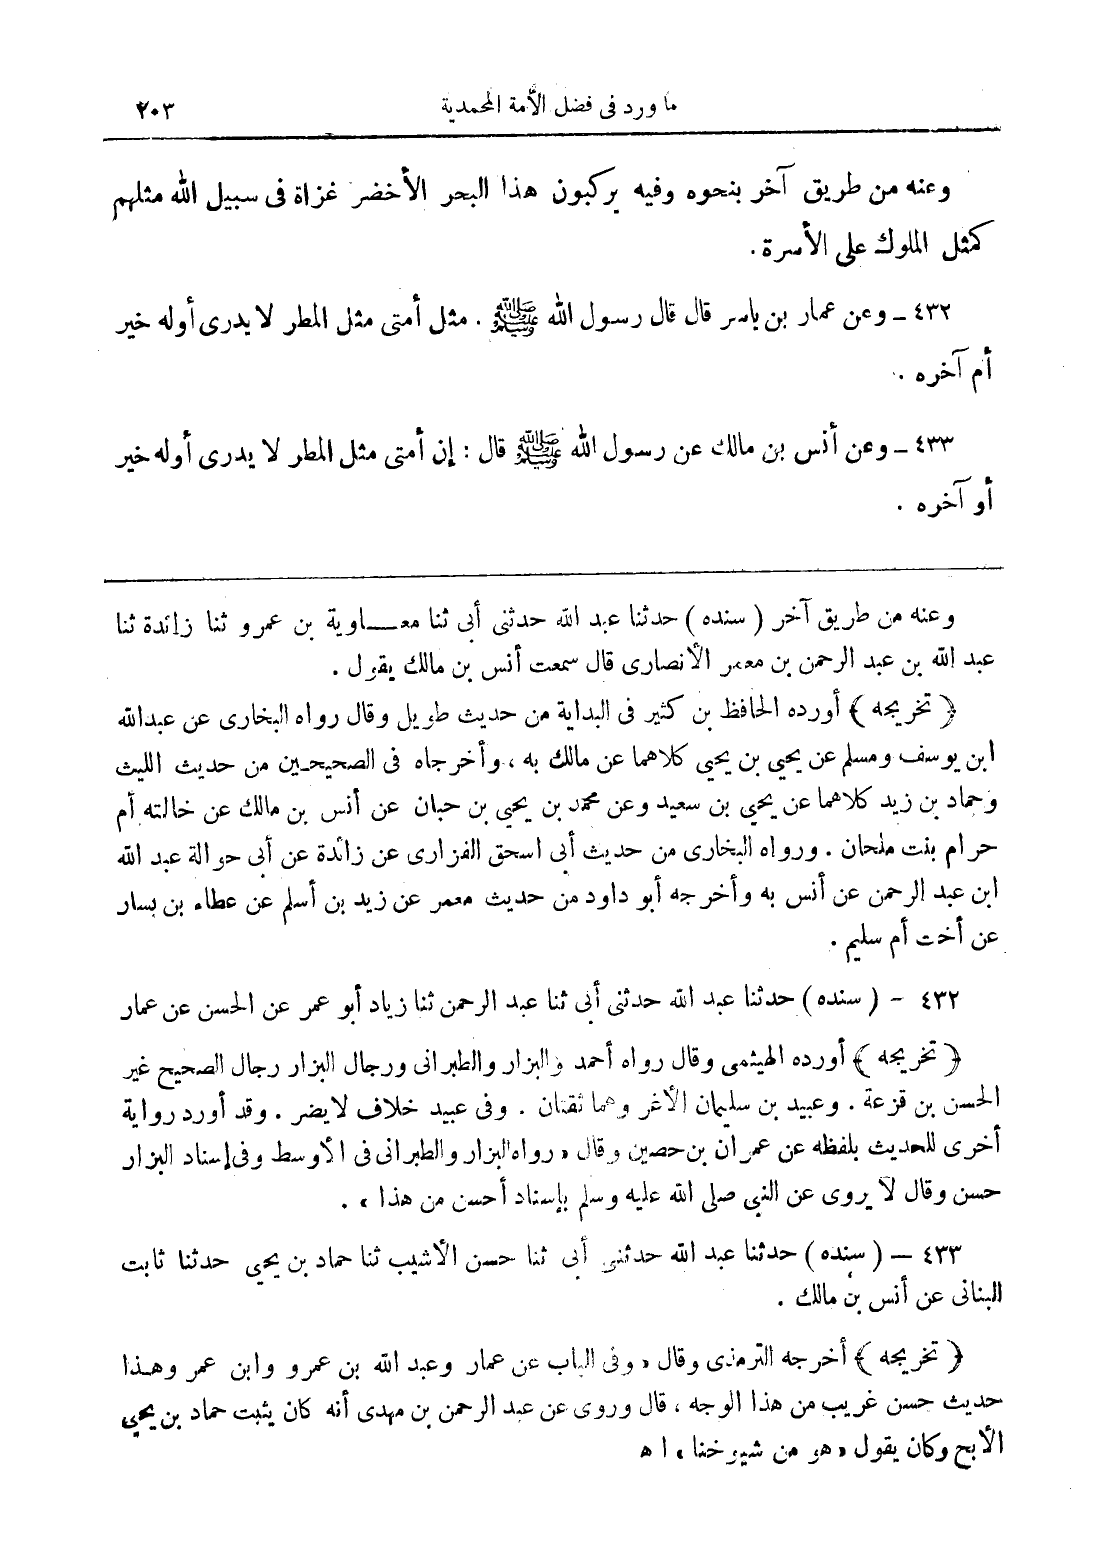 ما ورد فى فضل الأمة المحمدية ٢٠٣
وعنه من طريق آخر بنحوه وفيه يركبون هذا البحر الأخضر غزاة فى سبيل الله مثلهم
كمثل الملوك على الأسرة .
٤٣٢ ــ وعن عمار بن ياسر قال قال رسول الله ﷺ . مثل أمتى مثل المطر لا يدرى أوله خير
أم آخره .
٤٣٣ ــ وعن أنس بن مالك عن رسول الله ﷺ قال : إن أمتى مثل المطر لا يدرى أوله خير
أو آخره .
وعنه من طريق آخر ( سنده ) حدثنا عبد الله حدثنى أبى ثنا معـــاوية بن عمرو ثنا زائدة ثنا
عبد الله بن عبد الرحمن بن معمر الأنصارى قال سمعت أنس بن مالك يقول .
﴿ تخريجه ﴾ أورده الحافظ بن كثير فى البداية من حديث طويل وقال رواه البخارى عن عبدالله
ابن يوسف ومسلم عن يحيى بن يحيى كلاهما عن مالك به ، وأخرجاه فى الصحيحـين من حديث الليث
وحماد بن زيد كلاهما عن يحيى بن سعيد وعن محمد بن يحيى بن حبان عن أنس بن مالك عن خالته أم
حرام بنت ملحان . ورواه البخارى من حديث أبى اسحق الفزارى عن زائدة عن أبى حوالة عبد الله
ابن عبد الرحمن عن أنس به وأخرجه أبو داود من حديث معمر عن زيد بن أسلم عن عطاء بن يسار
عن أخت أم سليم .
٤٣٢ - ( سنده ) حدثنا عبد الله حدثنى أبى ثنا عبد الرحمن ثنا زياد أبو عمر عن الحسن عن عمار
﴿ تخريجه ﴾ أورده الهيثمى وقال رواه أحمد والبزار والطبرانى ورجال البزار رجال الصحيح غير
الحسن بن قزعة . وعبيد بن سليمان الأغر وهما ثقتان . وفى عبيد خلاف لايضر . وقد أورد رواية
أخرى للحديث بلفظه عن عمران بن حصين وقال « رواه البزار والطبرانى فى الأوسط وفى إسناد البزار
حسن وقال لا يروى عن النبى صلى الله عليه وسلم بإسناد أحسن من هذا » .
٤٣٣ — ( سنده ) حدثنا عبد الله حدثنى أبى ثنا حسن الأشيب ثنا حماد بن يحيى حدثنا ثابت
البنانى عن أنس بن مالك .
﴿ تخريجه ﴾ أخرجه الترمذى وقال « وفى الباب عن عمار وعبد الله بن عمرو وابن عمر وهـذا
حديث حسن غريب من هذا الوجه ، قال وروى عن عبد الرحمن بن مهدى أنه كان يثبت حماد بن يحيى
الأبح وكان يقول « هو من شيوخنا » ا ه